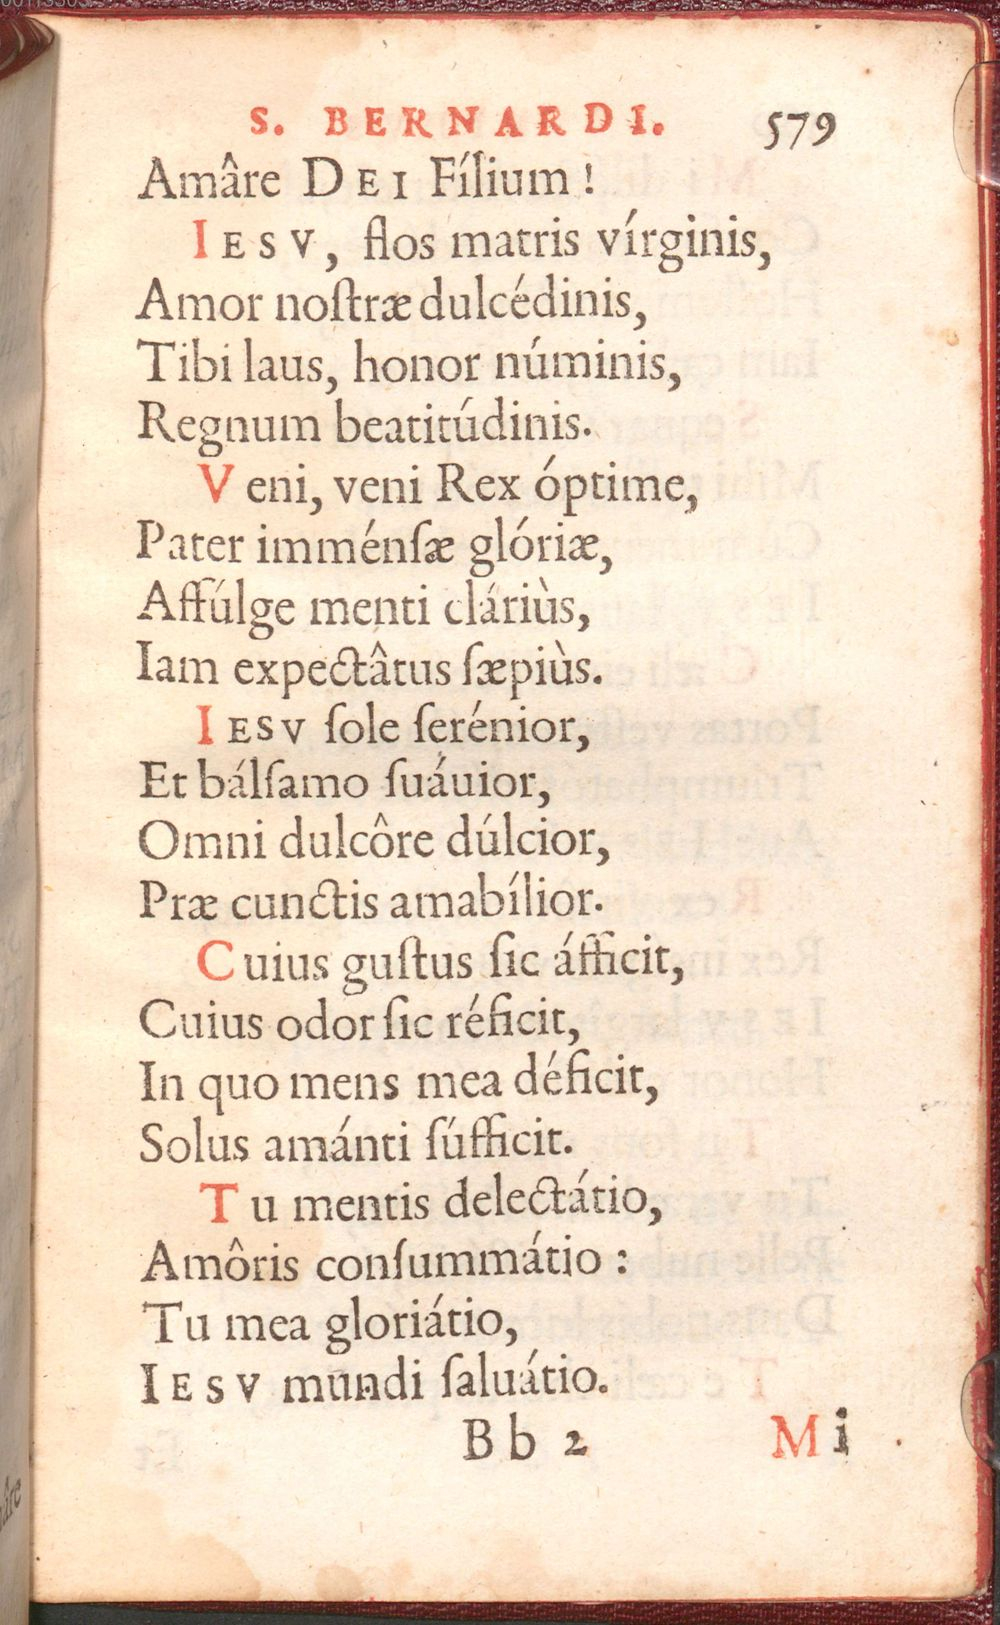 S. BERNARDI. 579
Amâre DEI Fílium !
IESV, flos matris vírginis,
Amor noſtræ dulcédinis,
Tibi laus, honor núminis,
Regnum beatitúdinis.
Veni, veni Rex óptime,
Pater imménſæ glóriæ,
Affúlge menti cláriùs,
Iam expectâtus ſæpiùs.
IESV ſole ſerénior,
Et bálſamo ſuáuior,
Omni dulcôre dúlcior,
Præ cunctis amabílior.
Cuius guſtus ſic áfficit,
Cuius odor ſic réficit,
In quo mens mea déficit,
Solus amánti ſúfficit.
Tu mentis delectátio,
Amôris conſummátio :
Tu mea gloriátio,
IESV mundi ſaluátio.
Bb 2 Mi